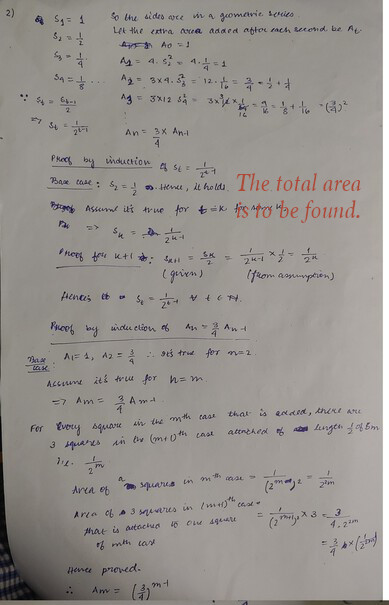 2)
S₁ = 1 So the sides are in a geometric series.
S₂ = 1/2 Let the extra area added after each second be Aₜ
S₃ = 1/4 A₀ = 1
S₄ = 1/8 ...
A₁ = 4·S₂² = 4·1/4 = 1
A₂ = 3×4·S₃² = 12·1/16 = 3/4 = 1/2 + 1/4
∵ Sₜ = Sₜ₋₁/2
⇒ Sₜ = 1/2ᵗ⁻¹
Aₙ = 3/4 × Aₙ₋₁
Proof by induction of Sₜ = 1/2ᵗ⁻¹
Base case: S₂ = 1/2. Hence, it holds.
The total area
is to be found.
Assume it's true for t = k for some k.
⇒ Sₖ = 1/2ᵏ⁻¹
Proof for k+1: Sₖ₊₁ = Sₖ/2 = 1/2ᵏ⁻¹ × 1/2 = 1/2ᵏ
(given) (from assumption)
Hence Sₜ = 1/2ᵗ⁻¹ ∀ t ∈ N.
Proof by induction of Aₙ = 3/4 Aₙ₋₁
Base case: A₁ = 1, A₂ = 3/4 ∴ it's true for n=2.
Assume it's true for n = m.
⇒ Aₘ = 3/4 Aₘ₋₁
For every square in the mth case that is added, there are
3 squares in the (m+1)th case attached of length 1/2 of Sm
i.e. 1/2ᵐ
Area of a square in mth case = 1/(2ᵐ)² = 1/2²ᵐ
Area of 3 squares in (m+1)th case
that is attached to one square
of mth case
= 1/(2ᵐ⁺¹)² × 3 = 3/4·2²ᵐ
= 3/4 × (1/2²ᵐ)
Hence proved.
∴ Aₘ = (3/4)ᵐ⁻¹